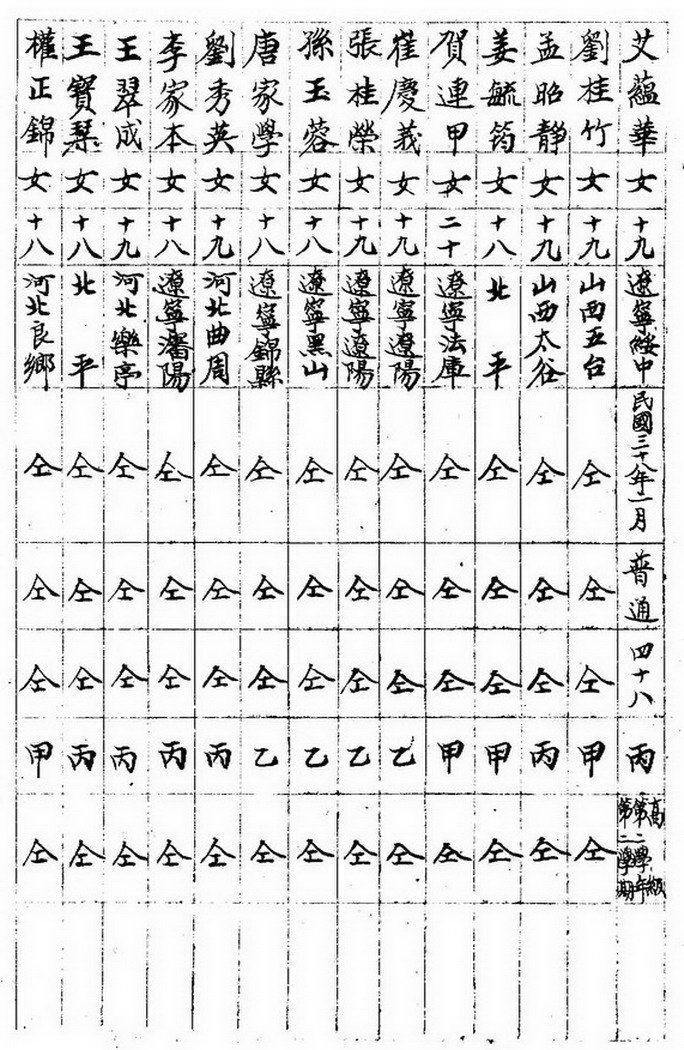 艾蘊華 女 十九 遼寧綏中 民國三十八年一月 普通 四十八 丙 高級第二學年第二學期
劉桂竹 女 十九 山西五台 仝 仝 仝 甲 仝
孟昭靜 女 十九 山西太谷 仝 仝 仝 丙 仝
姜毓筠 女 十八 北平 仝 仝 仝 甲 仝
賀連甲 女 二十 遼寧法庫 仝 仝 仝 甲 仝
崔慶義 女 十九 遼寧遼陽 仝 仝 仝 乙 仝
張桂榮 女 十九 遼寧遼陽 仝 仝 仝 乙 仝
孫玉蓉 女 十八 遼寧黑山 仝 仝 仝 乙 仝
唐家學 女 十八 遼寧錦縣 仝 仝 仝 乙 仝
劉秀英 女 十九 河北曲周 仝 仝 仝 丙 仝
李家本 女 十八 遼寧瀋陽 仝 仝 仝 丙 仝
王翠成 女 十九 河北樂亭 仝 仝 仝 丙 仝
王寶琹 女 十八 北平 仝 仝 仝 丙 仝
權正錦 女 十八 河北良鄉 仝 仝 仝 甲 仝